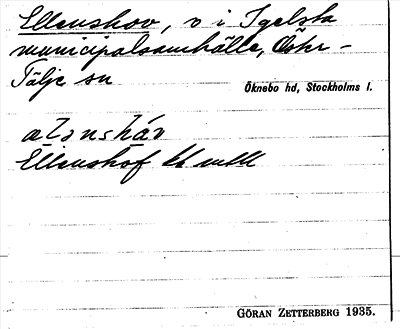 Ellenshov, v i Igelsta
municipalsamhälle, Öster-
Tälje sn
Öknebo hd, Stockholms l.
Ellenshof
GÖRAN ZETTERBERG 1935.